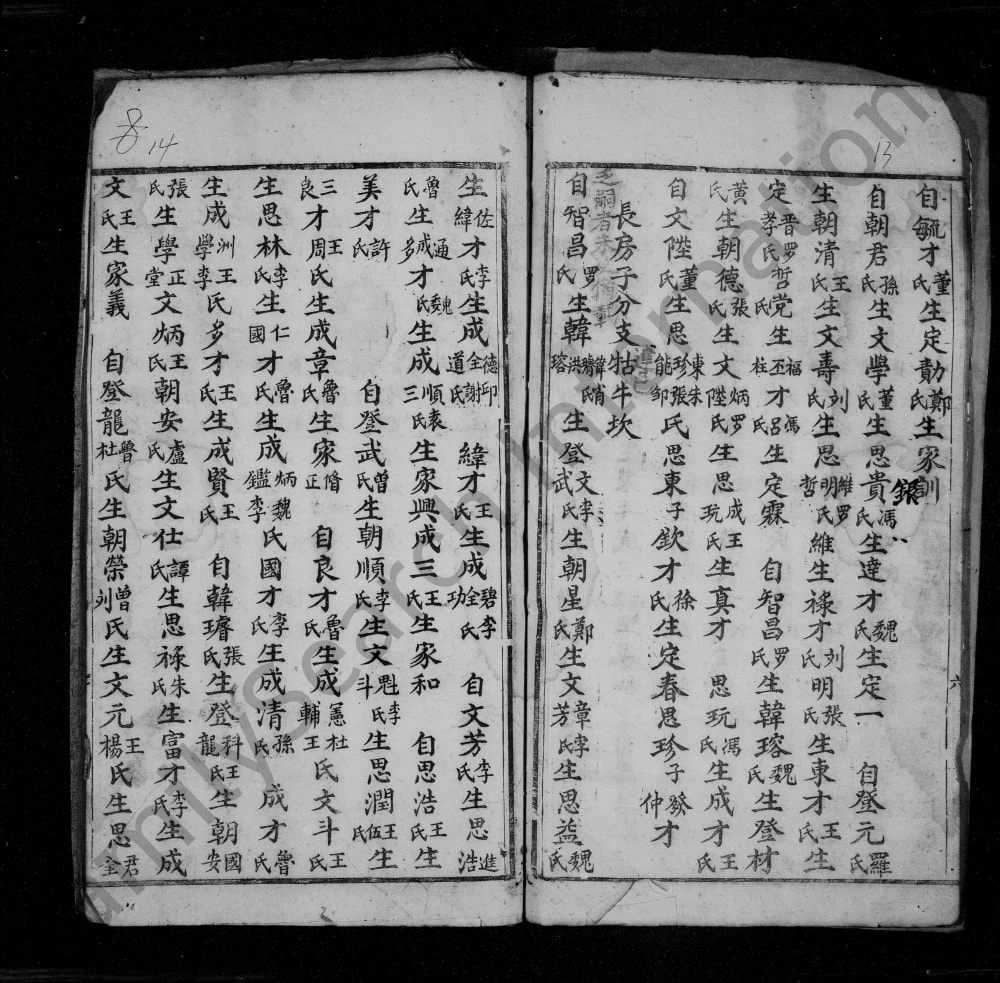 13
自毓才董氏生定勛鄭氏生家訓
自朝君孫氏生文學董氏生思貴銀馮氏生達才魏氏生定一 自登元羅氏
生朝清王氏生文壽刘氏生思明哲維罗氏維生祿才刘氏明張氏生東才王氏生
定晋孝罗氏哲党氏生福柱丕才馮呂氏生定霖 自智昌罗氏生韓瑢魏氏生登材
黄氏生朝德張氏生文炳陛罗氏生思成玩王氏生真才 思玩馮氏生成才王氏
自文陛董氏生思東珍能朱張邹氏思東子欽才徐氏生定春思珍子發仲才
長房子分支牯牛坎
自智昌罗氏生韓瑢生登文武李氏生朝星鄭氏生文章芳李氏生思益魏氏
六
14
生佐緯才李氏生成德道全印謝氏 緯才王氏生成碧功全李氏 自文芳李氏生思進浩
魯氏生成多通才魏氏生成順三袁氏生家興成三王氏生家和 自思浩王氏生
美才許氏 自登武曾氏生朝順李氏生文魁斗李氏生思潤王伍氏生
三良才王周氏生成章魯氏生家脩正 自良才魯氏生成憲輔杜王氏文斗王氏
生思林李氏生仁國才魯氏生成炳鑑魏李氏國才李氏生成清孫氏成才魯氏
生成洲學王李氏多才王氏生成賢王氏 自韓璿張氏生登科龍王氏生朝國安
張氏生學正堂文炳王氏朝安盧氏生文仕譚氏生思祿朱氏生富才李氏生成
文王氏生家義 自登龍魯杜氏生朝榮曾刘氏生文元王楊氏生思君全
familysearch International